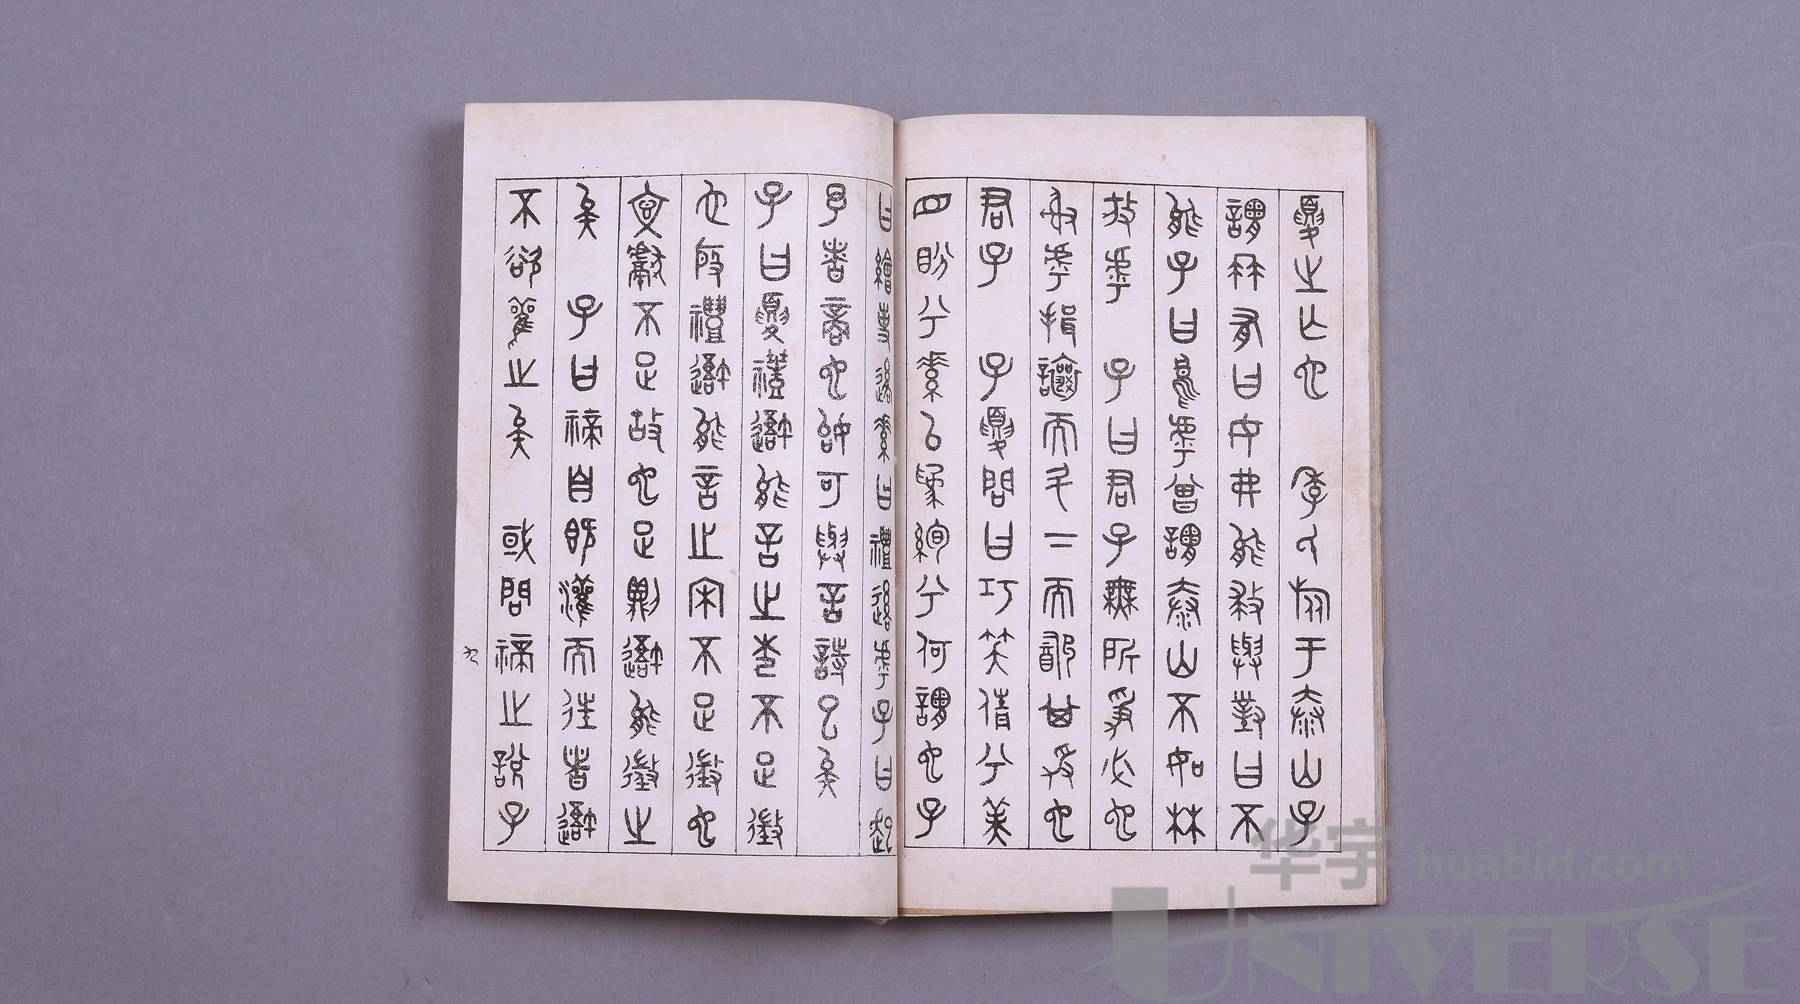 夏之亡也　季氏旅于泰山子
謂冉有曰女弗能救與對曰不
能子曰烏乎曾謂泰山不如林
放乎　子曰君子無所爭必也
射乎揖讓而升下而飲其爭也
君子　子夏問曰巧笑倩兮美
目盼兮素以為絢兮何謂也子
曰繪事後素曰禮後乎子曰起
予者商也始可與言詩已矣
子曰夏禮吾能言之杞不足徵
也殷禮吾能言之宋不足徵也
文獻不足故也足則吾能徵之
矣　子曰禘自既灌而往者吾
不欲觀之矣　或問禘之說子
九
华宇 huabid.com
UNIVERSE